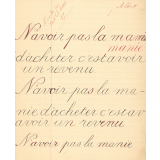 N'avoir pas la mani
manie
d'acheter c'est avoir
un revenu
N'avoir pas la ma-
nie d'acheter c'est av-
avoir un revenu
N'avoir pas la manie